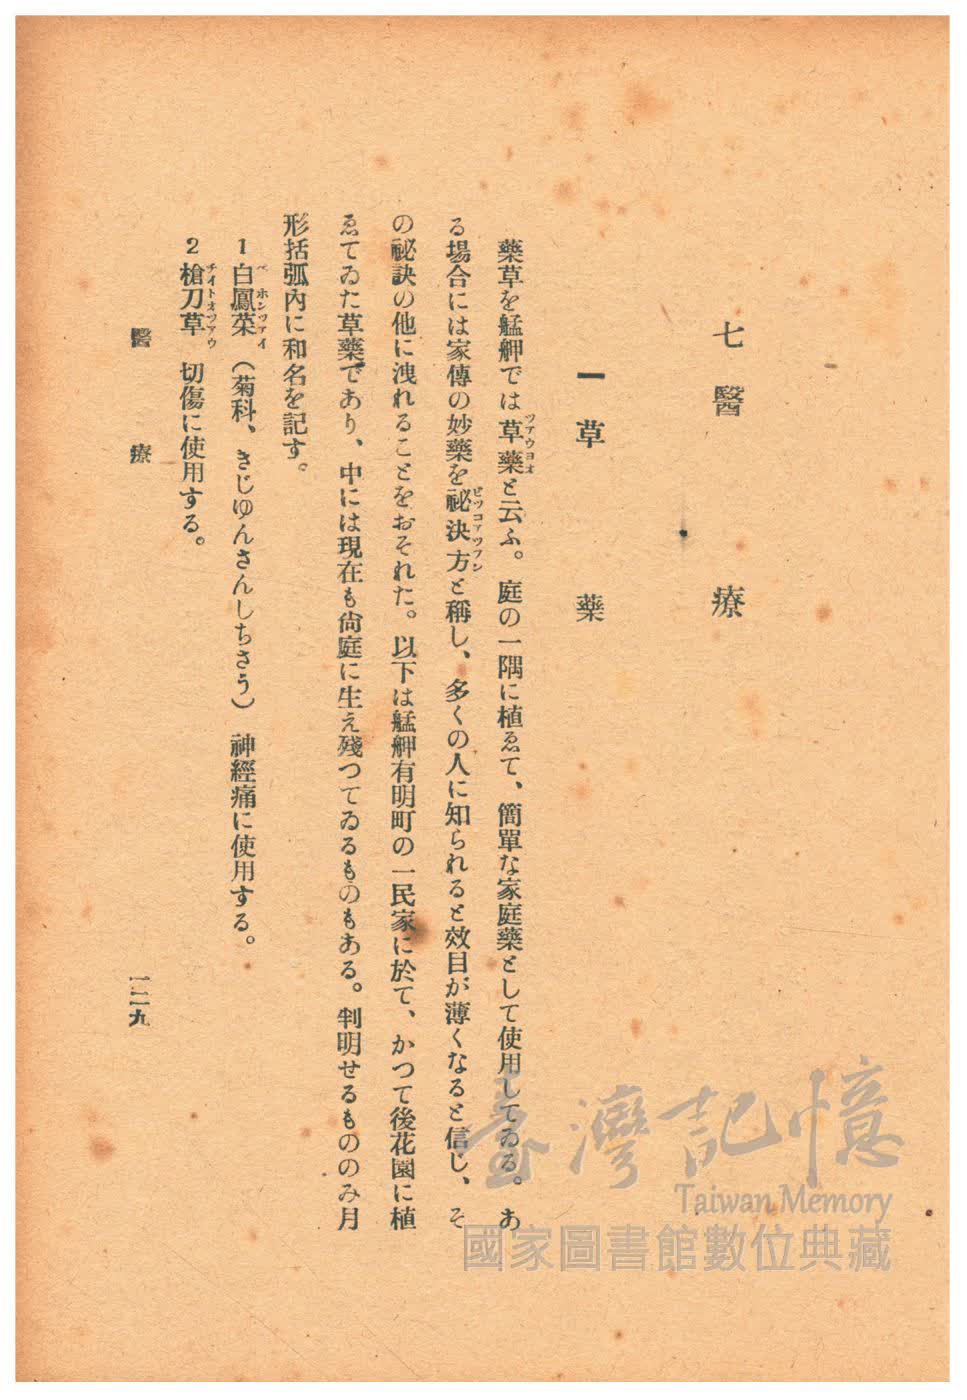 七 醫 療
一 草 藥
藥草を艋舺では草藥と云ふ。庭の一隅に植ゑて、簡單な家庭藥として使用してゐる。あ
ツアウヨオ
る場合には家傳の妙藥を祕決方と稱し、多くの人に知られると效目が薄くなると信じ、そ
ピツコアツフン
の祕訣の他に洩れることをおそれた。以下は艋舺有明町の一民家に於て、かつて後花園に植
ゑてゐた草藥であり、中には現在も尙庭に生え殘つてゐるものもある。判明せるもののみ月
形括弧內に和名を記す。
1 白鳳菜 (菊科、きじゆんさんしちさう) 神經痛に使用する。
ペ ホンツアイ
2 槍刀草 切傷に使用する。
チイトオツアウ
醫 療
一二九
臺灣記憶
Taiwan Memory
國家圖書館數位典藏